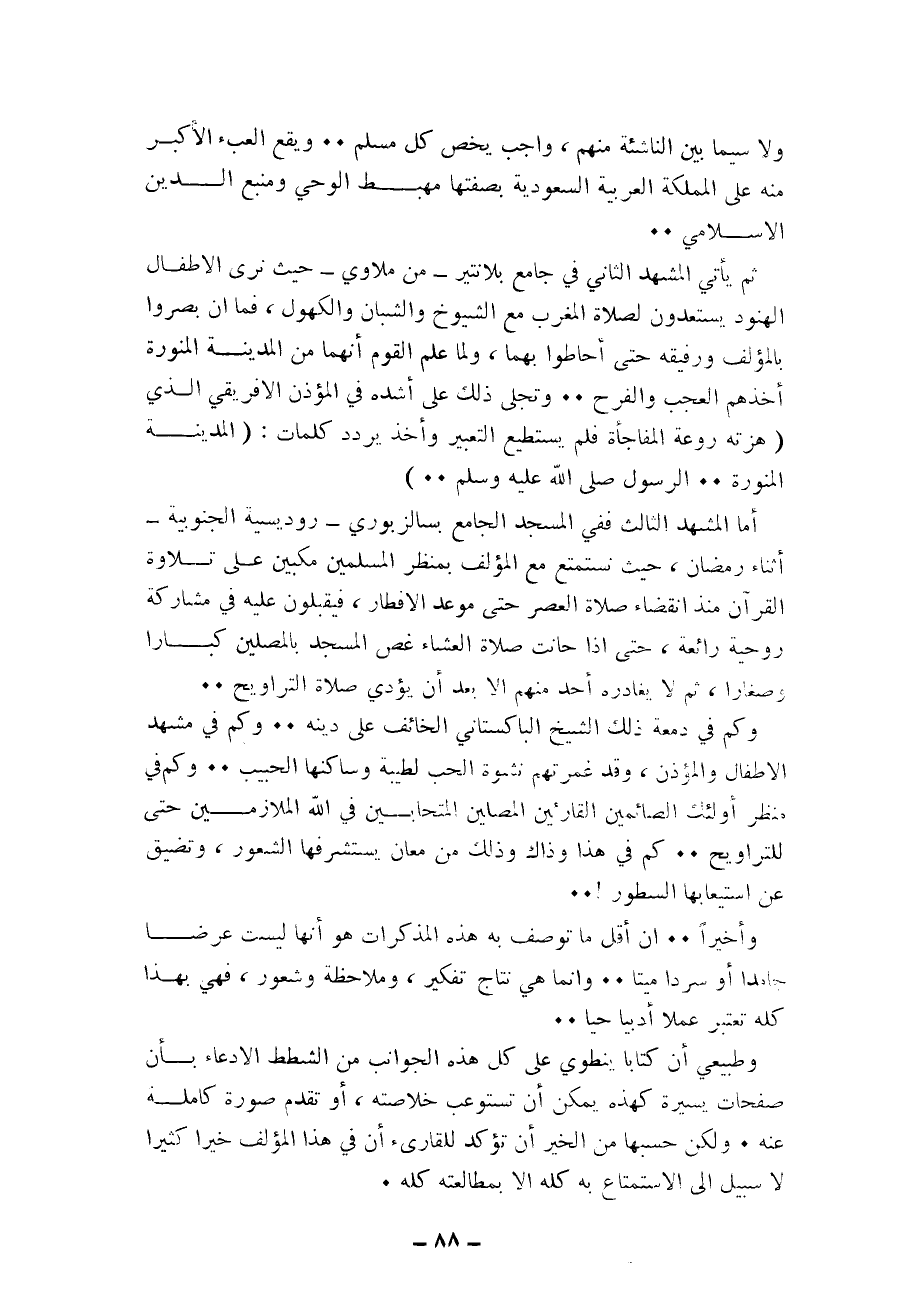 ولا سيما بين الناشئة منهم ، واجب يخص كل مسلم ٠٠ ويقع العبء الأكبر
منه على المملكة العربية السعودية بصفتها مهبط الوحي ومنبع الدين
الاسلامي ٠٠
ثم يأتي المشهد الثاني في جامع بلانتير – من ملاوي – حيث نرى الاطفال
الهنود يستعدون لصلاة المغرب مع الشيوخ والشبان والكهول ، فما ان بصروا
بالمؤلف ورفيقه حتى أحاطوا بهما ، ولما علم القوم أنهما من المدينة المنورة
أخذهم العجب والفرح ٠٠ وتجلى ذلك على أشده في المؤذن الافريقي الذي
( هزته روعة المفاجأة فلم يستطيع التعبير وأخذ يردد كلمات : ( المدينة
المنورة ٠٠ الرسول صلى الله عليه وسلم ٠٠ )
أما المشهد الثالث ففي المسجد الجامع بسالزبوري – روديسية الجنوبية –
أثناء رمضان ، حيث نستمتع مع المؤلف بمنظر المسلمين مكبين على تلاوة
القرآن منذ انقضاء صلاة العصر حتى موعد الافطار ، فيقبلون عليه في مشاركة
روحية رائعة ، حتى اذا حانت صلاة العشاء غص المسجد بالمصلين كبارا
وصغارا ، ثم لا يغادره أحد منهم الا بعد أن يؤدي صلاة التراويح ٠٠
وكم في دمعة ذلك الشيخ الباكستاني الخائف على دينه ٠٠ وكم في مشهد
الاطفال والمؤذن ، وقد غمرتهم نشوة الحب لطيبة وساكنها الحبيب ٠٠ وكم في
منظر أولئك الصائمين القارئين المصلين المتحابين في الله الملازمين حتى
للتراويح ٠٠ كم في هذا وذاك وذلك من معان يستشرفها الشعور ، وتضيق
عن استيعابها السطور !٠٠
وأخيراً ٠٠ ان أقل ما توصف به هذه المذكرات هو أنها ليست عرضا
جامدا أو سردا ميتا ٠٠ وانما هي نتاج تفكير ، وملاحظة وشعور ، فهي بهذا
كله تعتبر عملا أدبيا حيا ٠٠
وطبيعي أن كتابا ينطوي على كل هذه الجوانب من الشطط الادعاء بأن
صفحات يسيرة كهذه يمكن أن تستوعب خلاصته ، أو تقدم صورة كاملة
عنه ٠ ولكن حسبها من الخير أن تؤكد للقارىء أن في هذا المؤلف خيرا كثيرا
لا سبيل الى الاستمتاع به كله الا بمطالعته كله ٠
– ٨٨ –